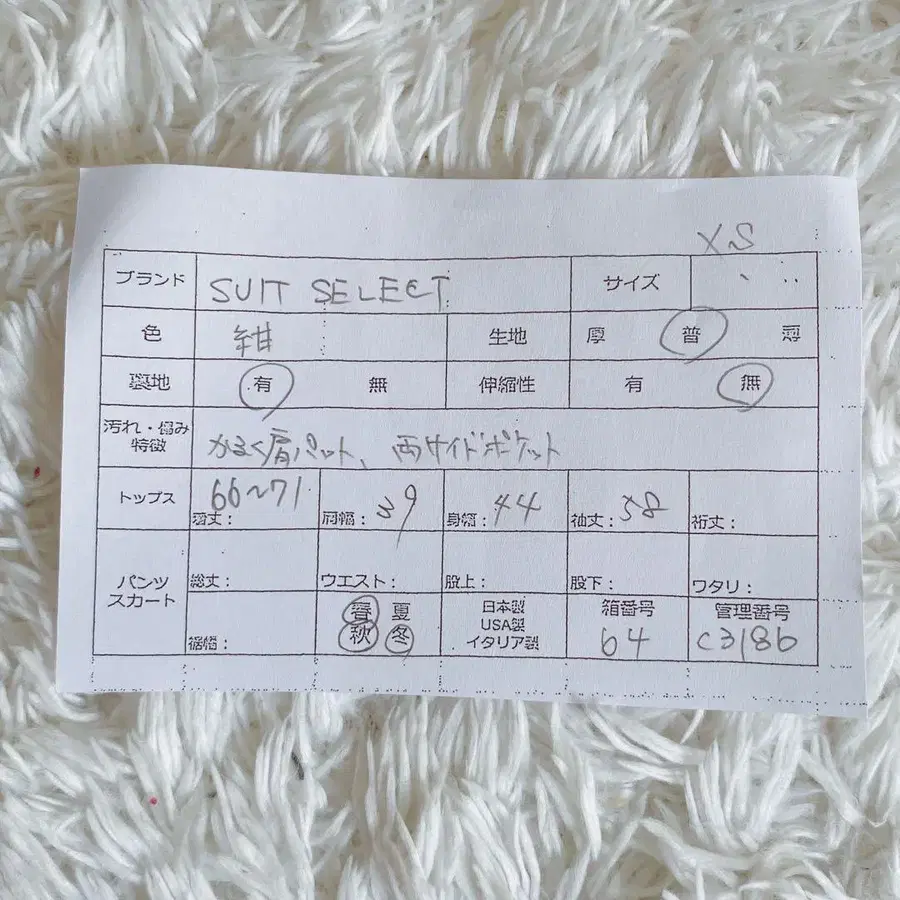 XS
ブランド SUIT SELECT サイズ
色 紺 生地 厚 普 薄
裏地 有 無 伸縮性 有 無
汚れ・傷み
特徴 かるく肩パット、両サイドポケット
トップス 着丈: 66〜71 肩幅: 39 身幅: 44 袖丈: 58 裄丈:
パンツ
スカート 総丈: ウエスト: 股上: 股下: ワタリ:
裾幅: 春 夏 秋 冬 日本製 USA製 イタリア製 箱番号 64 管理番号 C3186